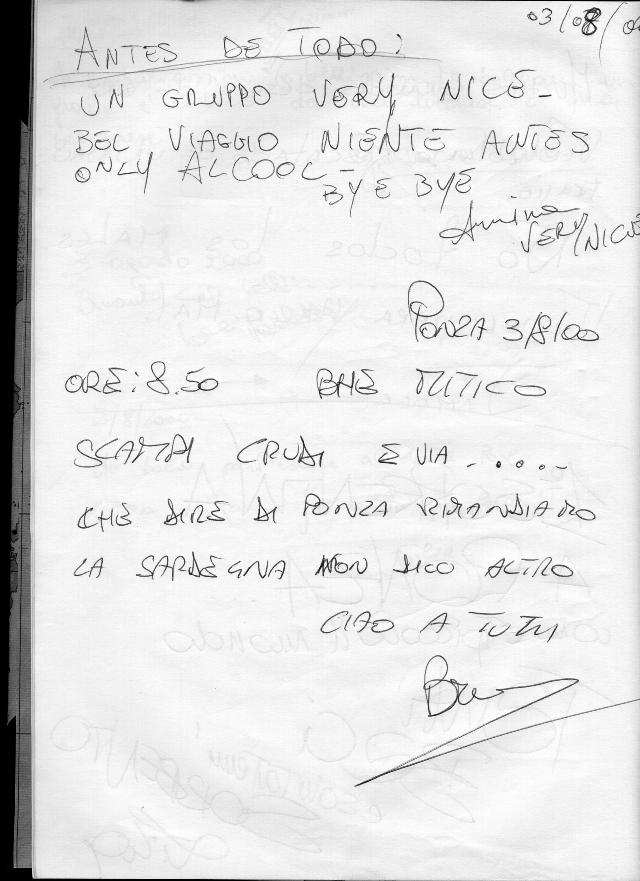 03/08/
ANTES DE TODO:
UN GRUPPO VERY NICE-
BEL VIAGGIO NIENTE ANTES
ONLY ALCOOL-
BYE BYE
VERY NICE
PONZA 3/8/00
ORE: 8.50 BHE MITICO
SCAMPI CRUDI E VIA .....-
CHE DIRE DI PONZA RIMANDIAMO
LA SARDEGNA NON DICO ALTRO
CIAO A TUTTI